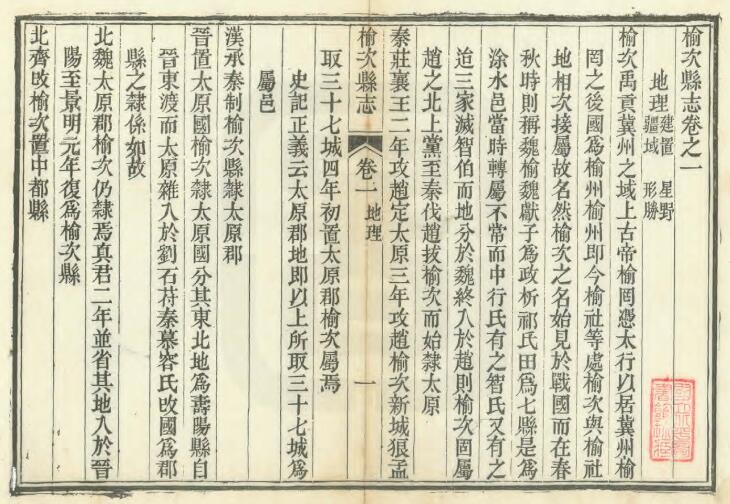 榆次縣志卷之一
地理 建置 星野
疆域 形勝
榆次禹貢冀州之域上古帝榆罔憑太行以居冀州榆
罔之後國爲榆州榆州即今榆社等處榆次與榆社
地相次接屬故名然榆次之名始見於戰國而在春
秋時則稱魏榆魏獻子爲政析祁氏田爲七縣是爲
涂水邑當時轉屬不常而中行氏有之智氏又有之
迨三家滅智伯而地分於魏終入於趙則榆次固屬
趙之北上黨至秦伐趙拔榆次而始隸太原
秦莊襄王二年攻趙定太原三年攻趙榆次新城狼孟
榆次縣志
卷一 地理
一
取三十七城四年初置太原郡榆次屬焉
史記正義云太原郡地即以上所取三十七城爲
屬邑
漢承秦制榆次縣隸太原郡
晉置太原國榆次隸太原國分其東北地爲壽陽縣自
晉東渡而太原雜入於劉石苻秦慕容氏攺國爲郡
縣之隸係如故
北魏太原郡榆次仍隸焉真君二年並省其地入於晉
陽至景明元年復爲榆次縣
北齊攺榆次置中都縣